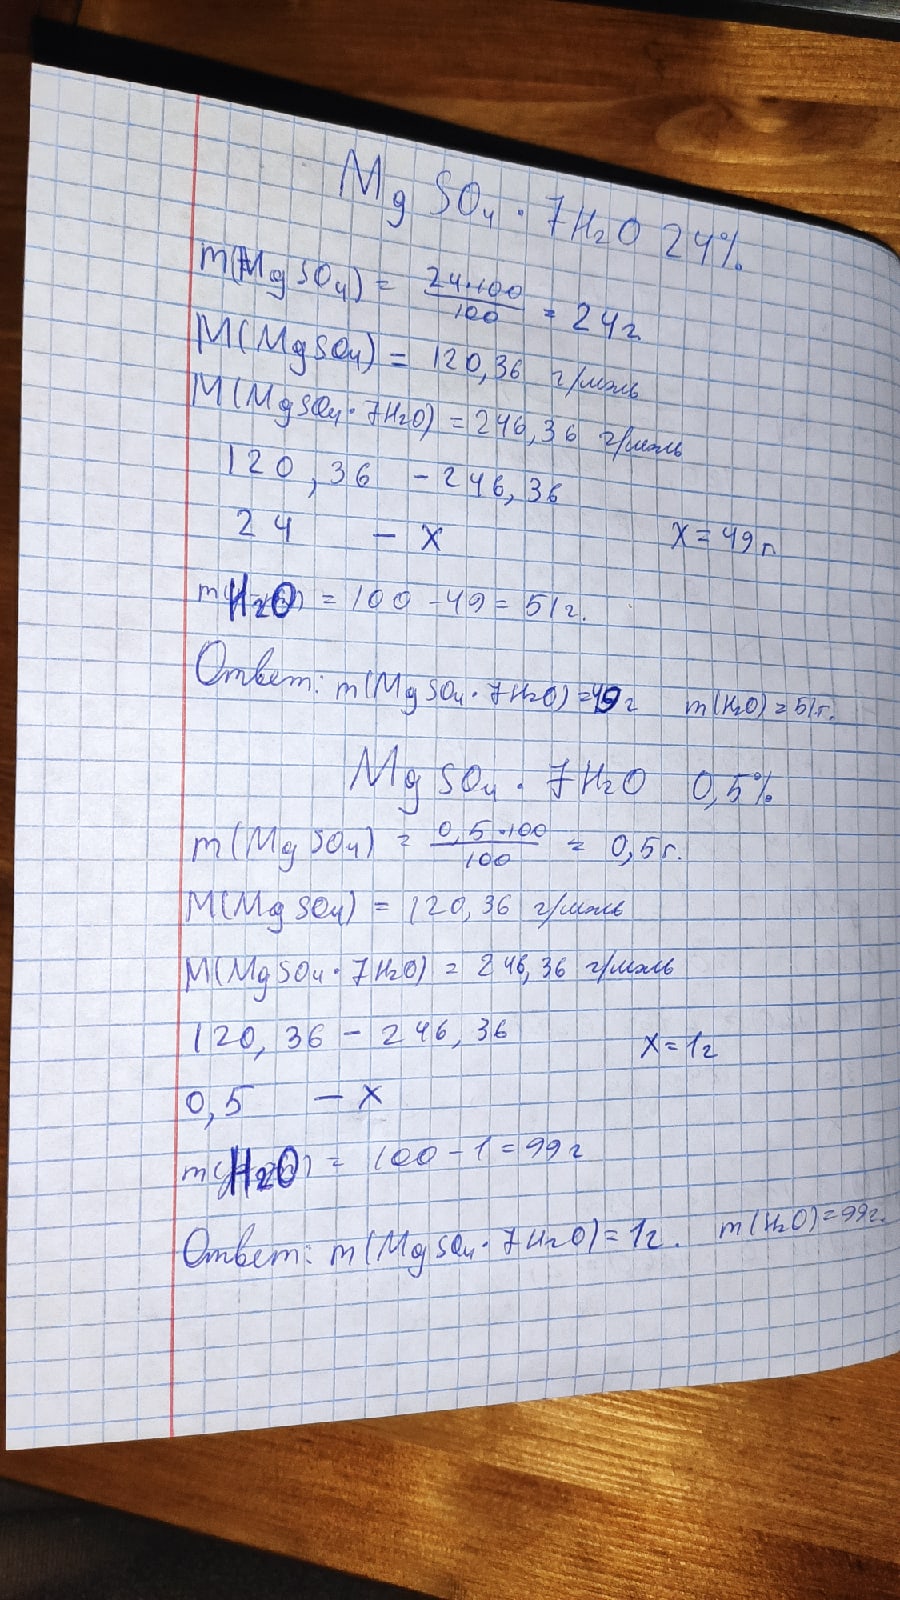 MgSO₄ · 7H₂O 24%
m(MgSO₄) = 24·100/100 = 24г
M(MgSO₄) = 120,36 г/моль
M(MgSO₄·7H₂O) = 246,36 г/моль
120,36 - 246,36
24 - x x = 49г
m H₂O) = 100 - 49 = 51г.
Ответ: m(MgSO₄·7H₂O) = 49г m(H₂O) = 51г.
MgSO₄ · 7H₂O 0,5%
m(MgSO₄) = 0,5·100/100 = 0,5г.
M(MgSO₄) = 120,36 г/моль
M(MgSO₄·7H₂O) = 246,36 г/моль
120,36 - 246,36 x = 1г
0,5 - x
m(H₂O) = 100 - 1 = 99г
Ответ: m(MgSO₄·7H₂O) = 1г. m(H₂O) = 99г.